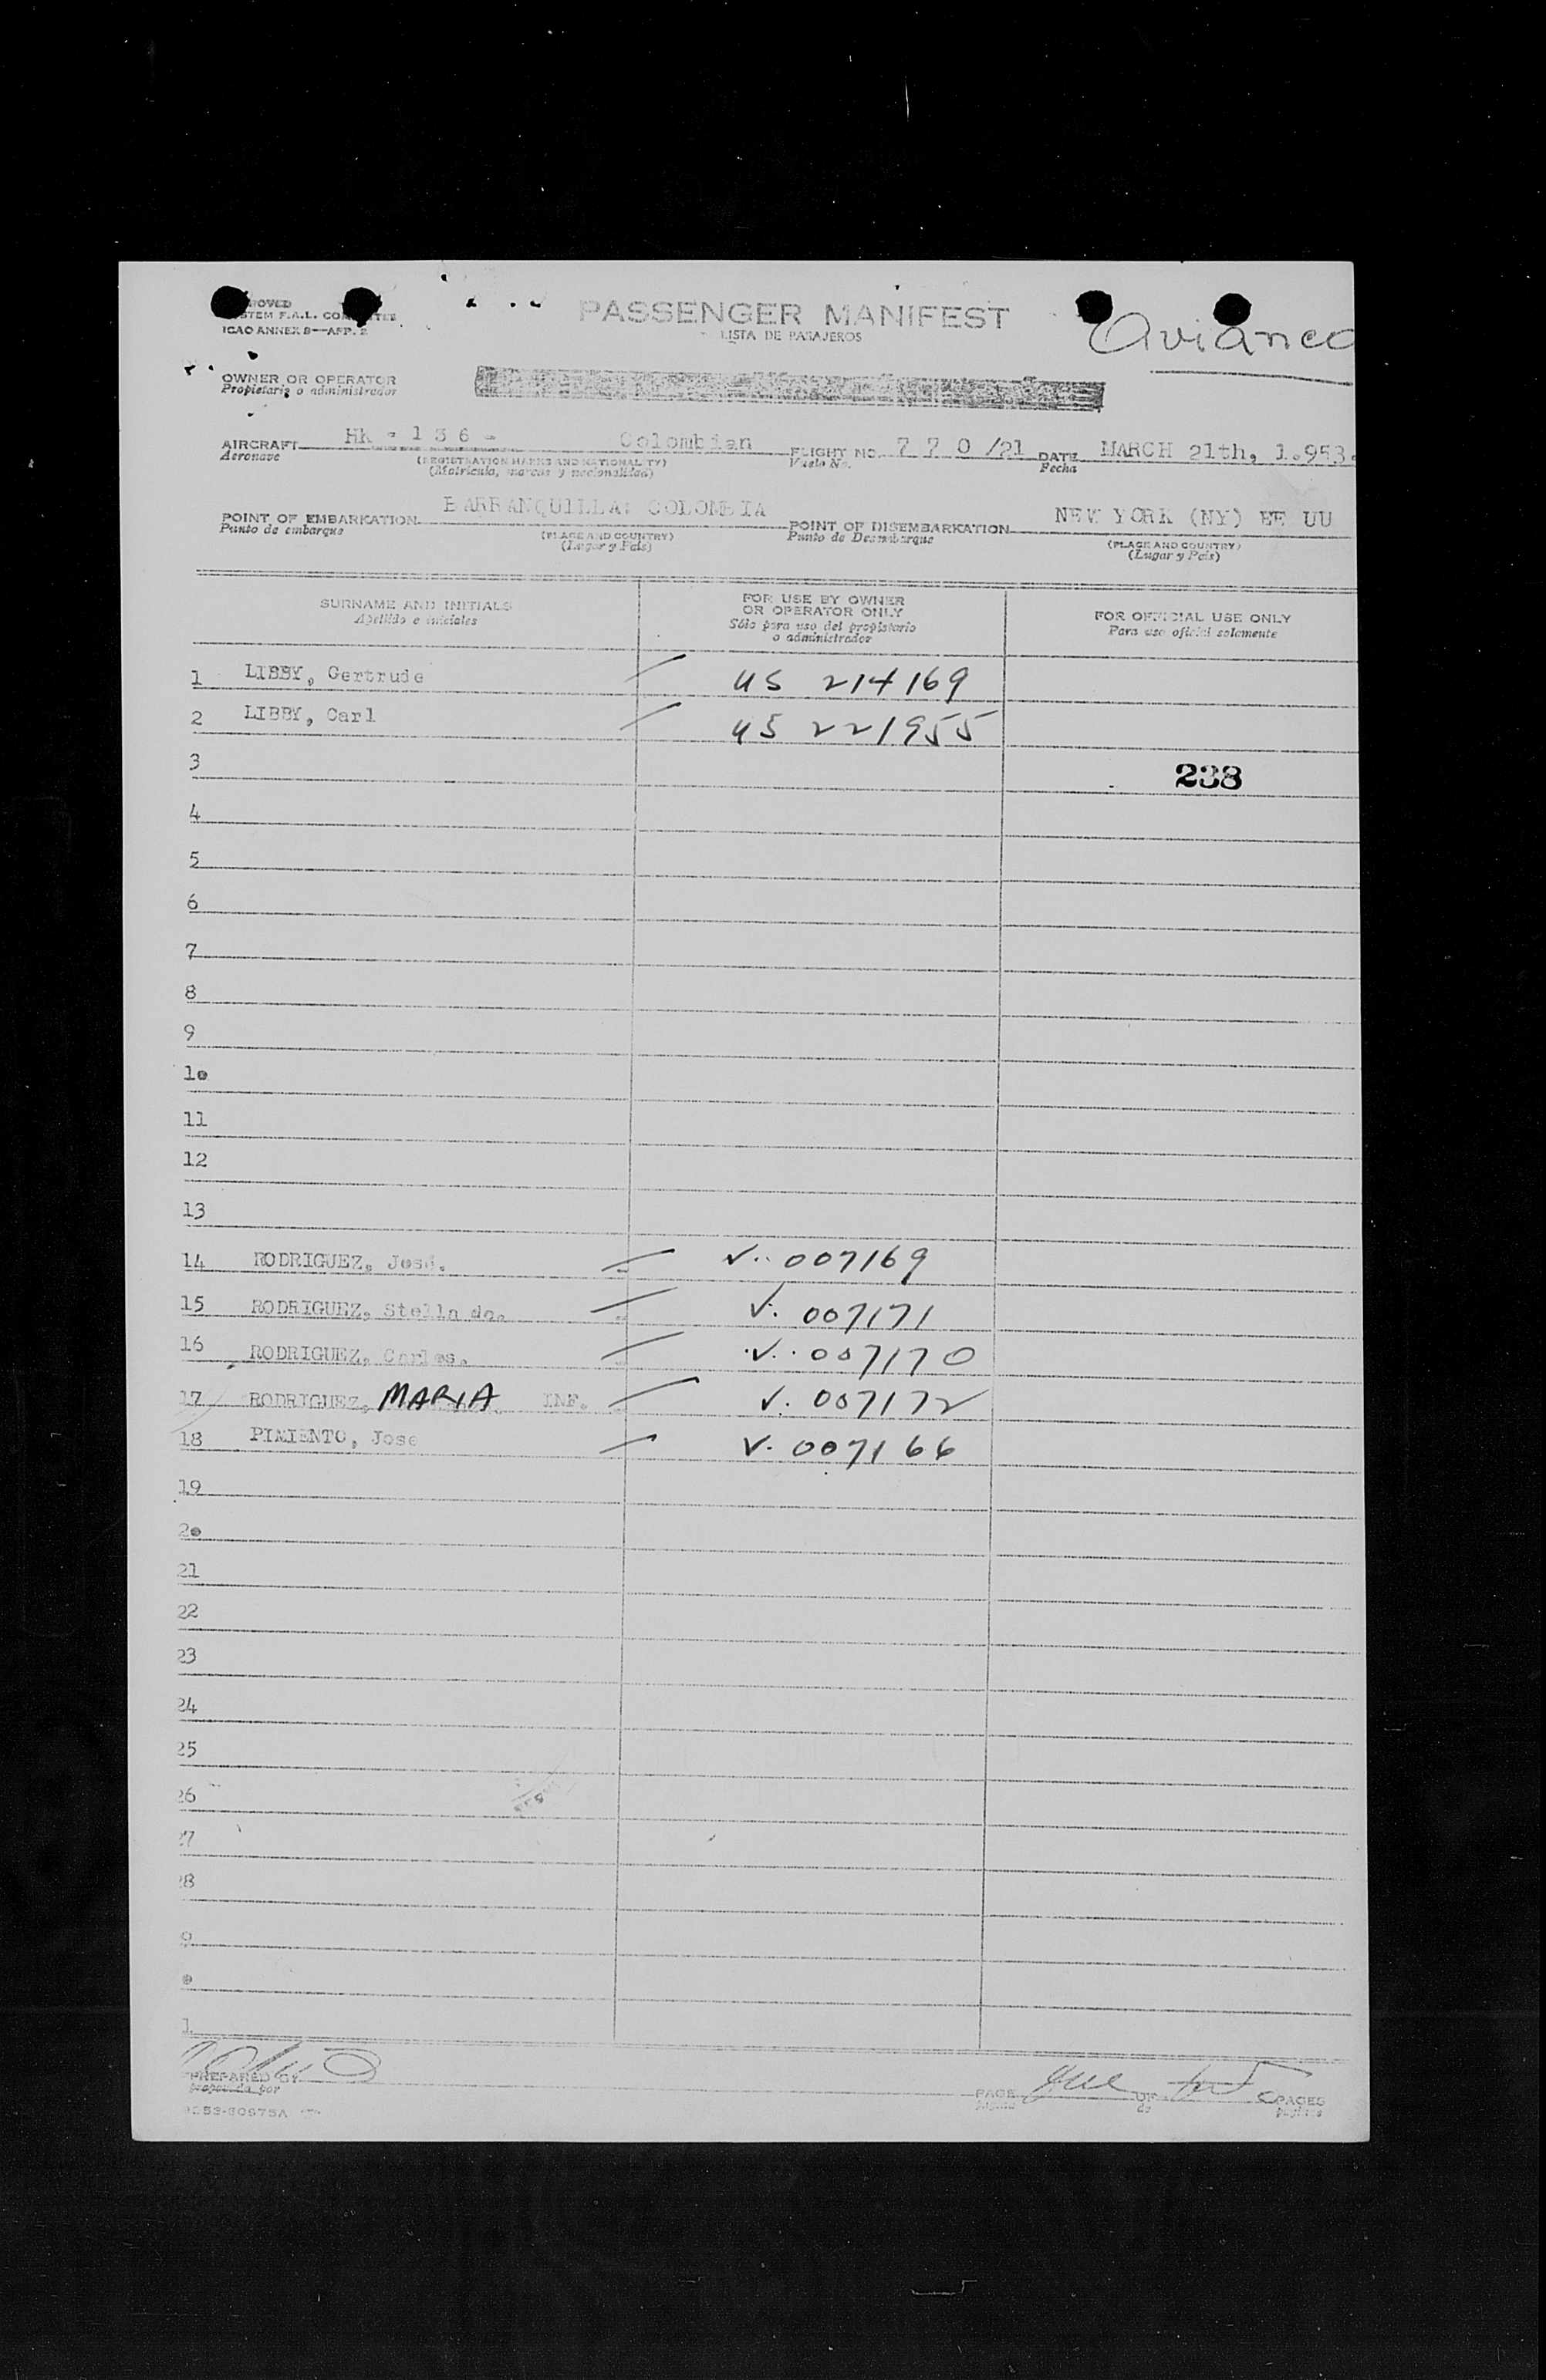 PASSENGER MANIFEST
LISTA DE PASAJEROS
Avianca
ICAO ANNEX 9—APP. 2
OWNER OR OPERATOR
Propietario o administrador
AIRCRAFT HK - 1 3 6 - Colombian FLIGHT NO. 7 7 0 /21 DATE MARCH 21th, 1.953.
Aeronave (REGISTRATION MARKS AND NATIONALITY) Vuelo No. Fecha
(Matrícula, marcas y nacionalidad)
POINT OF EMBARKATION BARRANQUILLA: COLOMBIA POINT OF DISEMBARKATION NEW YORK (NY) EE UU
Punto de embarque (PLACE AND COUNTRY) Punto de Desembarque (PLACE AND COUNTRY)
(Lugar y País) (Lugar y País)
SURNAME AND INITIALS FOR USE BY OWNER OR OPERATOR ONLY FOR OFFICIAL USE ONLY
Apellido e iniciales Sólo para uso del propietario o administrador Para uso oficial solamente
1 LIBBY, Gertrude US 214169
2 LIBBY, Carl US 221955
3 238
4
5
6
7
8
9
10
11
12
13
14 RODRIGUEZ, José. V. 007169
15 RODRIGUEZ, Stella de. V. 007171
16 RODRIGUEZ, Carlos. V. 007170
17 RODRIGUEZ, MARIA INF. V. 007172
18 PIMIENTO, Jose V. 007166
19
20
21
22
23
24
25
26
27
28
9
0
1
PREPARED BY PAGE OF PAGES